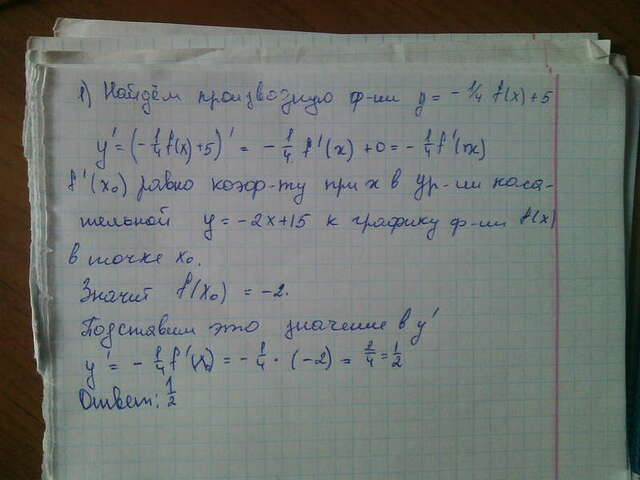 1) Найдём производную ф-ии y = - 1/4 f(x) + 5
y' = (- 1/4 f(x) + 5)' = - 1/4 f'(x) + 0 = - 1/4 f'(x)
f'(x₀) равно коэф-ту при x в ур-ии каса-
тельной y = -2x + 15 к графику ф-ии f(x)
в точке x₀.
Значит f'(x₀) = -2.
Подставим это значение в y'
y' = - 1/4 f'(x₀) = - 1/4 · (-2) = 2/4 = 1/2
Ответ: 1/2